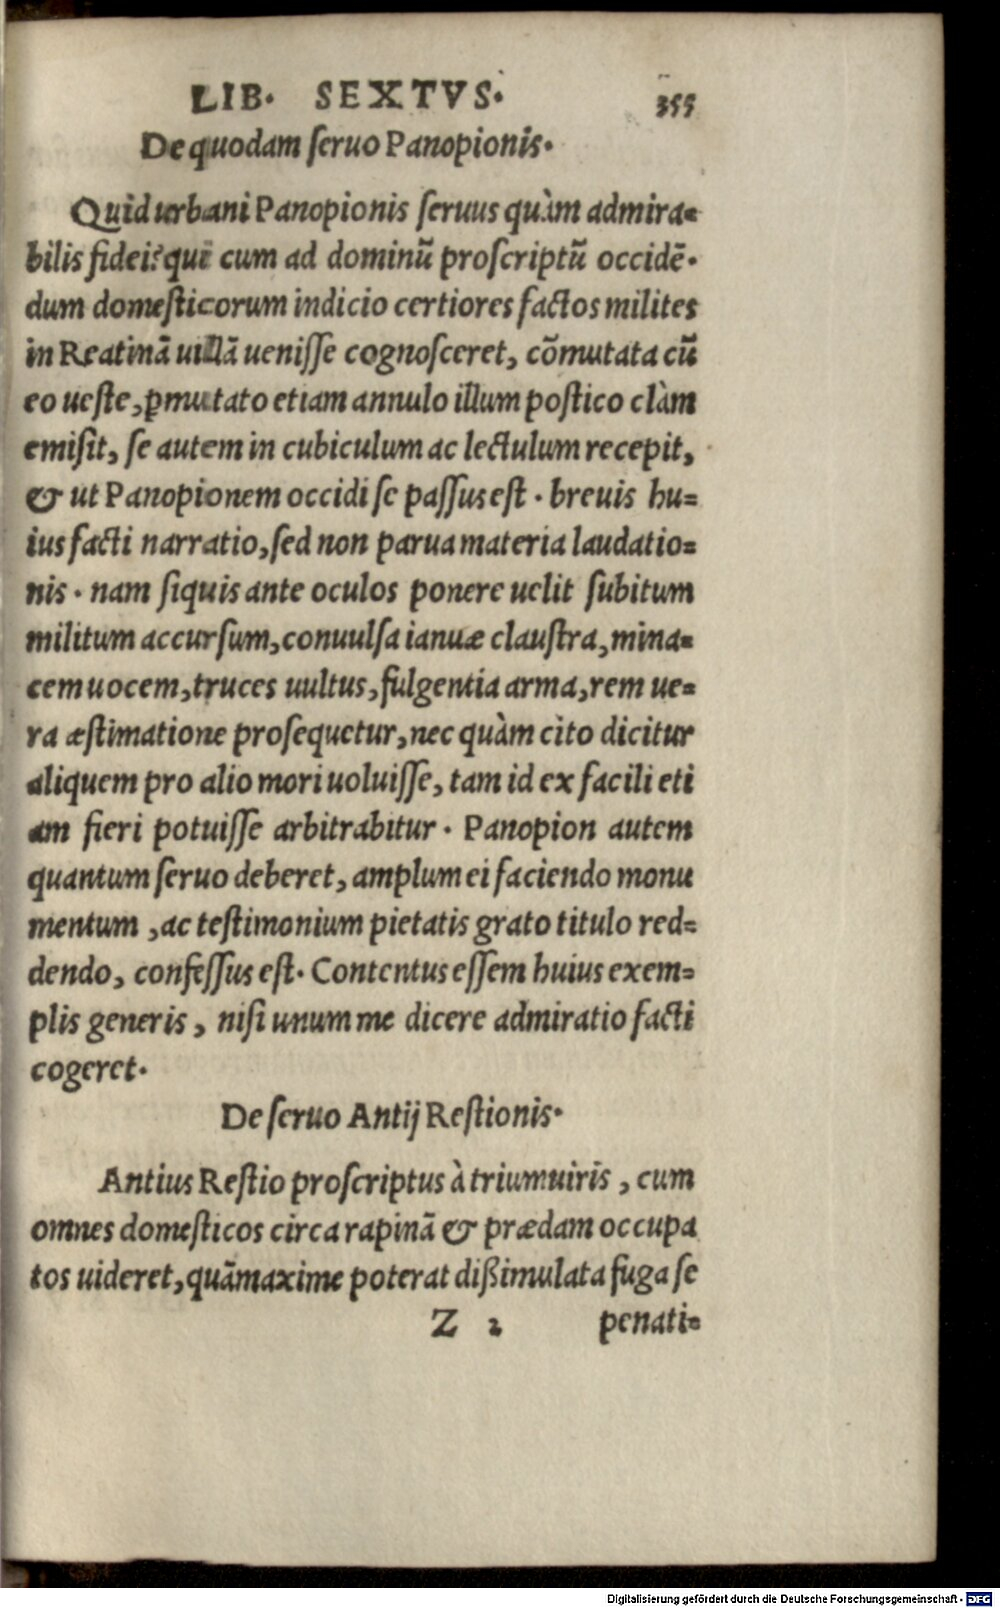 LIB. SEXTVS. 355
De quodam ſeruo Panopionis.
Quid urbani Panopionis ſeruus quàm admira=
bilis fidei? qui cum ad dominũ proſcriptũ occidẽ.
dum domeſticorum indicio certiores factos milites
in Reatinã uillã ueniſſe cognoſceret, cõmutata cũ
eo ueſte, ꝑmutato etiam annulo illum poſtico clàm
emiſit, ſe autem in cubiculum ac lectulum recepit,
& ut Panopionem occidi ſe paſſus est. breuis hu=
ius facti narratio, ſed non parua materia laudatio=
nis. nam ſiquis ante oculos ponere uelit ſubitum
militum accurſum, conuulſa ianuæ clauſtra, mina=
cem uocem, truces uultus, fulgentia arma, rem ue=
ra æſtimatione proſequetur, nec quàm cito dicitur
aliquem pro alio mori uoluiſſe, tam id ex facili eti
am fieri potuiſſe arbitrabitur. Panopion autem
quantum ſeruo deberet, amplum ei faciendo monu
mentum, ac teſtimonium pietatis grato titulo red=
dendo, confeſſus eſt. Contentus eſſem huius exem=
plis generis, niſi unum me dicere admiratio facti
cogeret.
De ſeruo Antij Reſtionis.
Antius Reſtio proſcriptus à triumuiris, cum
omnes domeſticos circa rapinã & prædam occupa
tos uideret, quãmaxime poterat dißimulata fuga ſe
Z 2 penati=
Digitalisierung gefördert durch die Deutsche Forschungsgemeinschaft - DFG